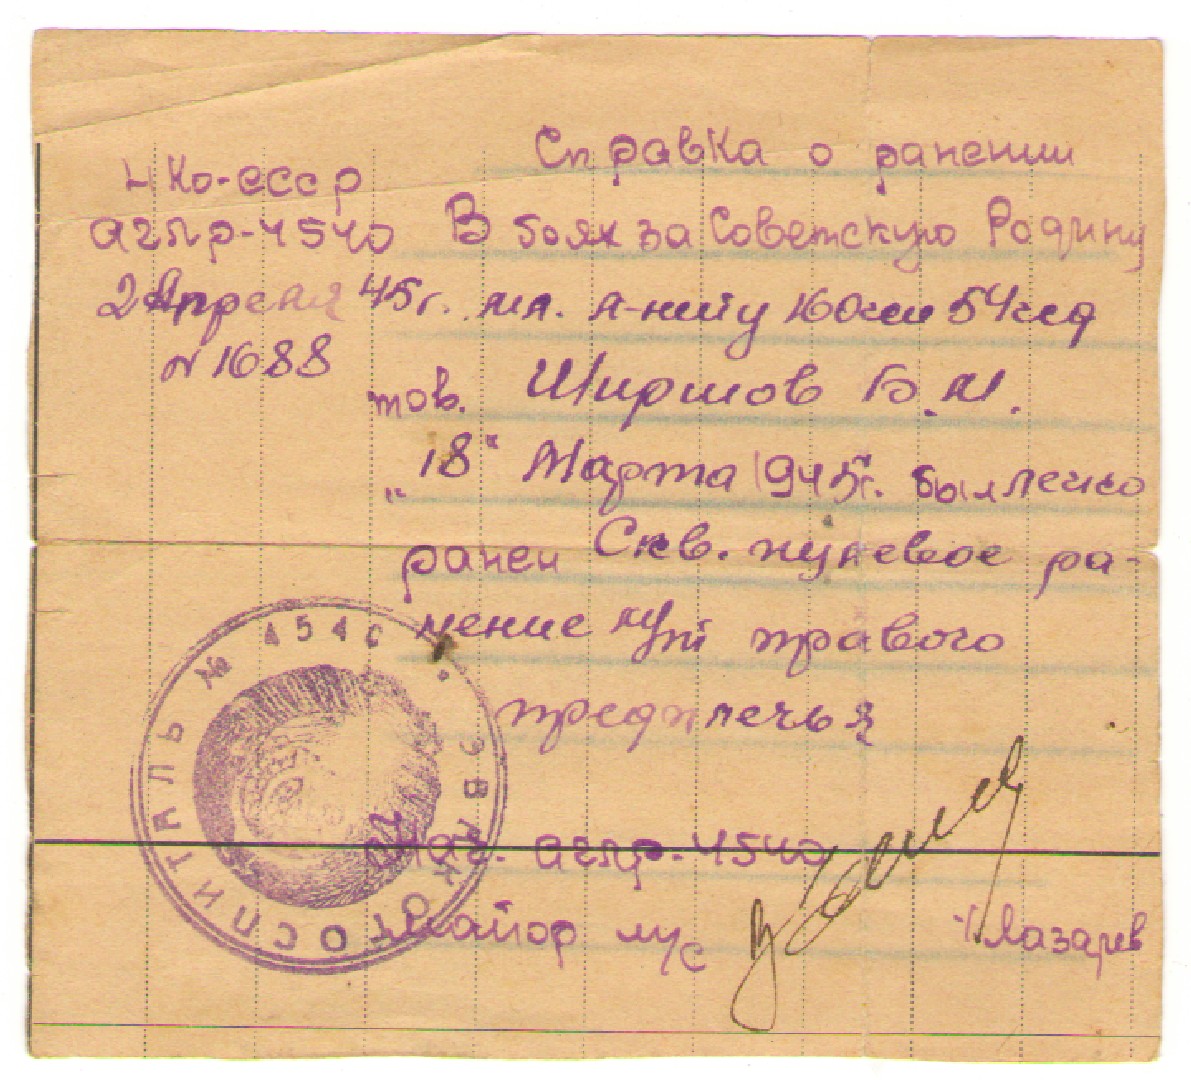 Справка о ранении
НКО-СССР
АГЛР-4540
2 Апреля 45г.
№ 1688
В боях за Советскую Родину
мл. л-нту 160 сп 54 сд
тов. Ширшов Б.М.
"18" Марта 1945г. был легко
ранен Скв. пулевое ра-
нение м/т правого
предплечья
Нач. АГЛР-4540
майор м/с Лазарев
ЭВАКОГОСПИТАЛЬ № 4540